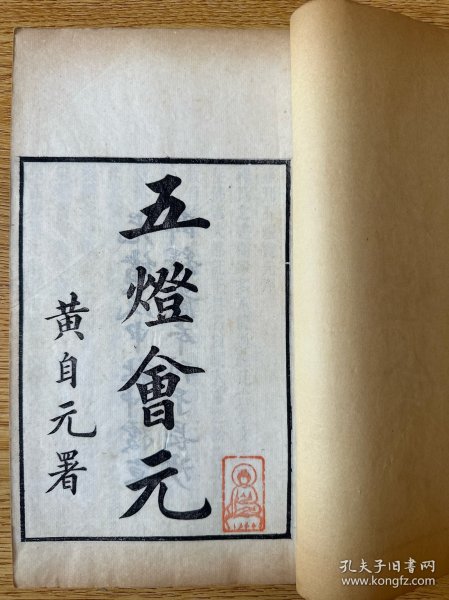 五燈會元
黃自元署
孔夫子旧书网
www.kongfz.com